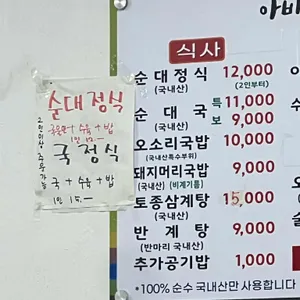 아바
순대정식
국물 + 수육 + 밥
1인 10.—
2인이상 주문가능
국정식
국 + 수육 + 밥
1인 15.—
식사
순대정식 12,000
(국내산) (2인부터)
순대국 특 11,000
(국내산) 보 9,000
오소리국밥 10,000
(국내산특수부위)
돼지머리국밥 9,000
(국내산) (비계기름)
토종삼계탕 15,000
(국내산)
반계탕 9,000
(반마리 국내산)
추가공기밥 1,000
*100% 순수 국내산만 사용합니다